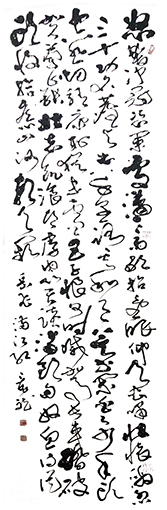 怒髮衝冠憑欄處瀟瀟雨歇抬望眼仰天長嘯壯懷激烈
三十功名塵與土八千里路雲和月莫等閒白了少年頭
空悲切靖康恥猶未雪臣子恨何時滅駕長車踏破
賀蘭山缺壯志飢餐胡虜肉笑談渴飲匈奴血待從
頭收拾舊山河朝天闕 岳飛滿江紅